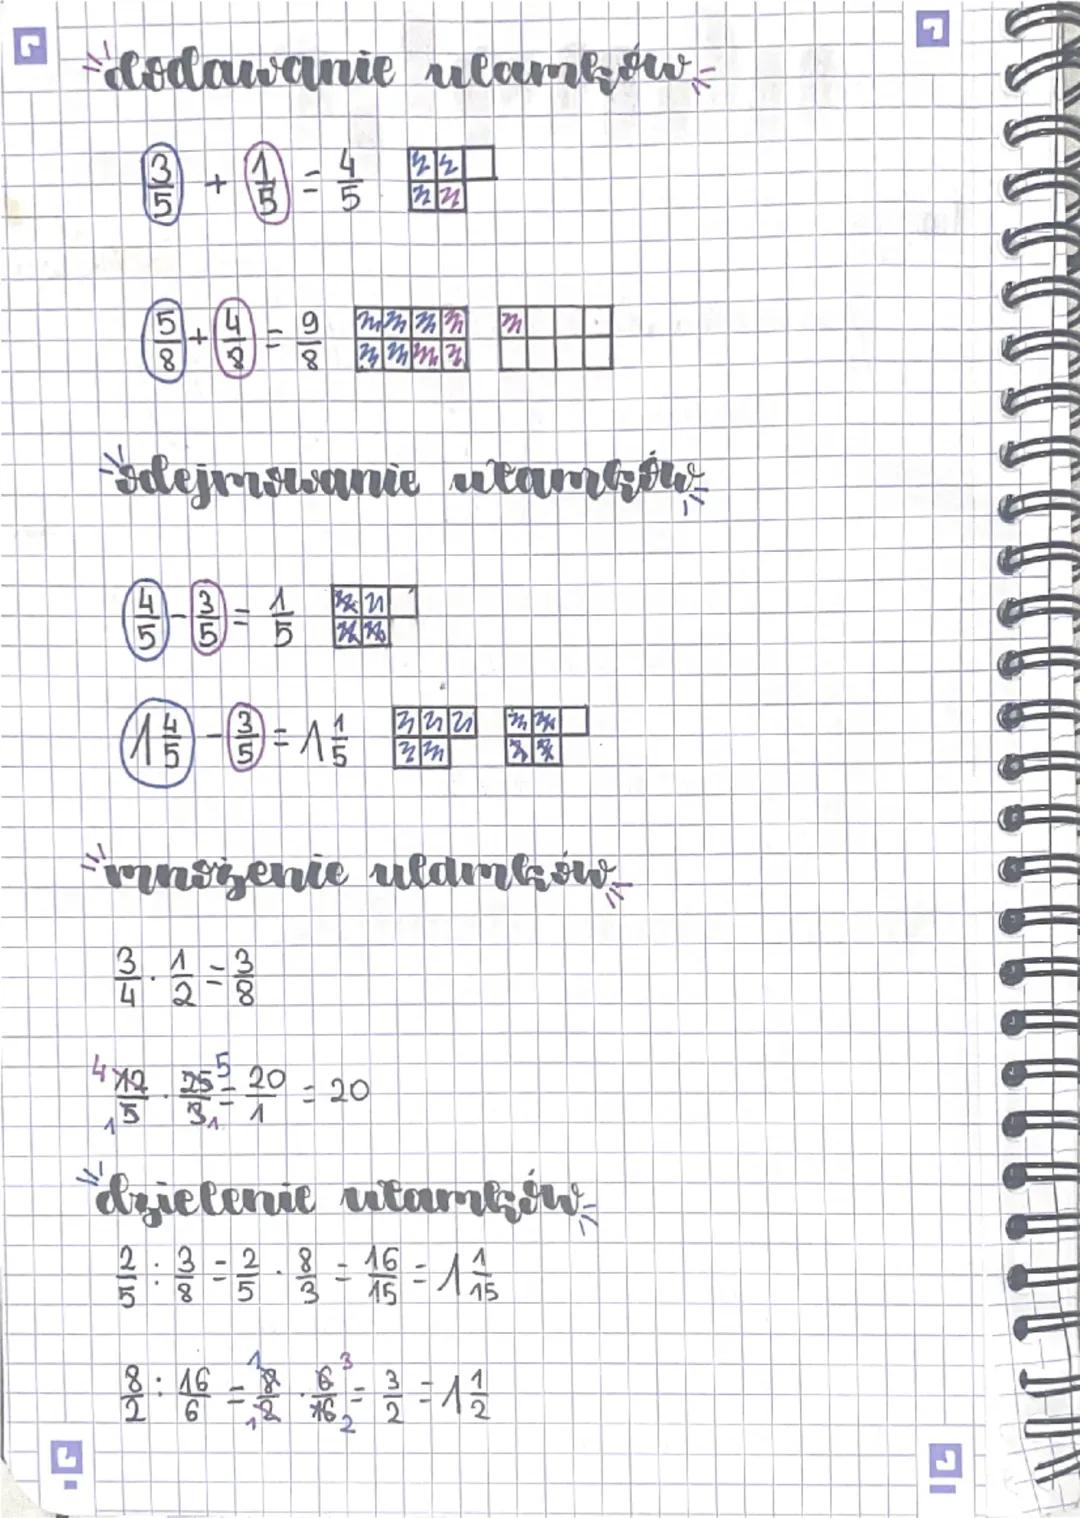 dodawanie ułamków
3/5 + 1/5 = 4/5
5/8 + 4/8 = 9/8
odejmowanie ułamków
4/5 - 3/5 = 1/5
1 4/5 - 3/5 = 1 1/5
mnożenie ułamków
3/4 · 1/2 = 3/8
4 12/5 1 · 25 5/3 1 = 20/1 = 20
dzielenie ułamków
2/5 : 3/8 = 2/5 · 8/3 = 16/15 = 1 1/15
8/2 : 16/6 = 1 8/2 1 · 6 3/16 2 = 3/2 = 1 1/2